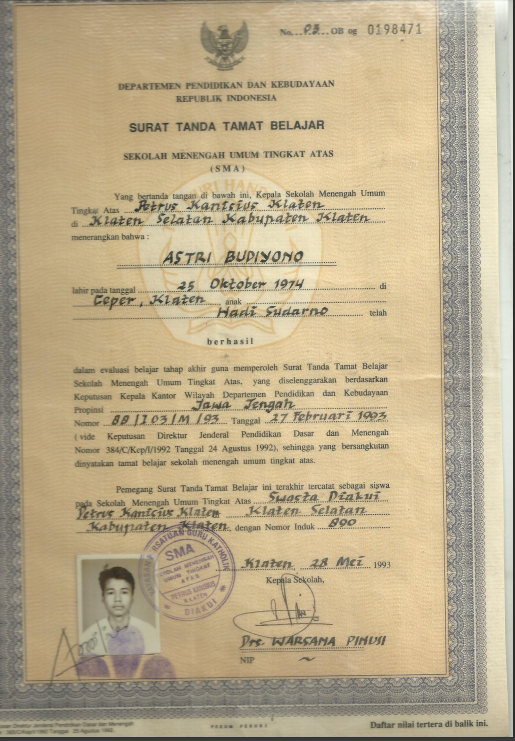 No. 03 OB og 0198471
DEPARTEMEN PENDIDIKAN DAN KEBUDAYAAN
REPUBLIK INDONESIA
SURAT TANDA TAMAT BELAJAR
SEKOLAH MENENGAH UMUM TINGKAT ATAS
(SMA)
Yang bertanda tangan di bawah ini, Kepala Sekolah Menengah Umum
Tingkat Atas Petrus Kanisius Klaten
di Klaten Selatan Kabupaten Klaten
menerangkan bahwa :
ASTRI BUDIYONO
lahir pada tanggal 25 Oktober 1974 di
Ceper, Klaten anak
Hadi Sudarno telah
berhasil
dalam evaluasi belajar tahap akhir guna memperoleh Surat Tanda Tamat Belajar
Sekolah Menengah Umum Tingkat Atas, yang diselenggarakan berdasarkan
Keputusan Kepala Kantor Wilayah Departemen Pendidikan dan Kebudayaan
Propinsi Jawa Tengah
Nomor 88/I03/M/93 Tanggal 27 Februari 1993
( vide Keputusan Direktur Jenderal Pendidikan Dasar dan Menengah
Nomor 384/C/Kep/I/1992 Tanggal 24 Agustus 1992), sehingga yang bersangkutan
dinyatakan tamat belajar sekolah menengah umum tingkat atas.
Pemegang Surat Tanda Tamat Belajar ini terakhir tercatat sebagai siswa
pada Sekolah Menengah Umum Tingkat Atas Swasta Diakui
Petrus Kanisius Klaten Klaten Selatan
Kabupaten Klaten, dengan Nomor Induk 890
SMA
SEKOLAH MENENGAH
UMUM TINGKAT
ATAS
PETRUS KANISIUS
KLATEN
DIAKUI
Klaten 28 Mei 1993
Kepala Sekolah,
Drs. WARSAMA
NIP ~
PERUM PERURI
Daftar nilai tertera di balik ini.